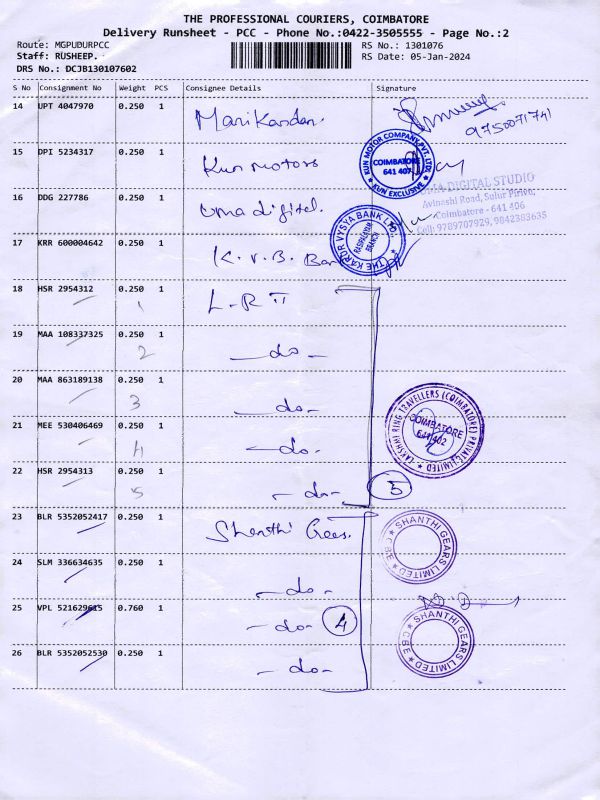 THE PROFESSIONAL COURIERS, COIMBATORE
Delivery Runsheet - PCC - Phone No.:0422-3505555 - Page No.:2
Route: MGPUDURPCC RS No.: 1301076
Staff: RUSHEEP. RS Date: 05-Jan-2024
DRS No.: DCJB130107602
S No Consignment No Weight PCS Consignee Details Signature
14 UPT 4047970 0.250 1 Marikandan.
9750071741
15 DPI 5234317 0.250 1 Kun Motors
KUN MOTOR COMPANY PVT. LTD. COIMBATORE 641 407 ★ KUN EXCLUSIVE ★
16 DDG 227786 0.250 1 Uma digital.
UMA DIGITAL STUDIO
Avinashi Road, Sulur Pirivu,
Coimbatore - 641 406
Cell: 9789707929, 9842383635
17 KRR 600004642 0.250 1 K. V. B. Bank
★ THE KARUR VYSYA BANK LTD. ★ BRANCH
18 HSR 2954312 0.250 1 L-R T
1
19 MAA 108337325 0.250 1 -do-
2
20 MAA 863189138 0.250 1 -do-
3
LAKSHMI RING TRAVELLERS (COIMBATORE) PRIVATE LIMITED ★ COIMBATORE 641 402
21 MEE 530406469 0.250 1 -do-
4
22 HSR 2954313 0.250 1 -do- 5
5
23 BLR 5352052417 0.250 1 Shanthi Gees.
★ SHANTHI GEARS LIMITED ★ CBE
24 SLM 336634635 0.250 1 -do-
25 VPL 521629615 0.760 1 -do- 4
★ SHANTHI GEARS LIMITED ★ CBE
26 BLR 5352052530 0.250 1 -do-